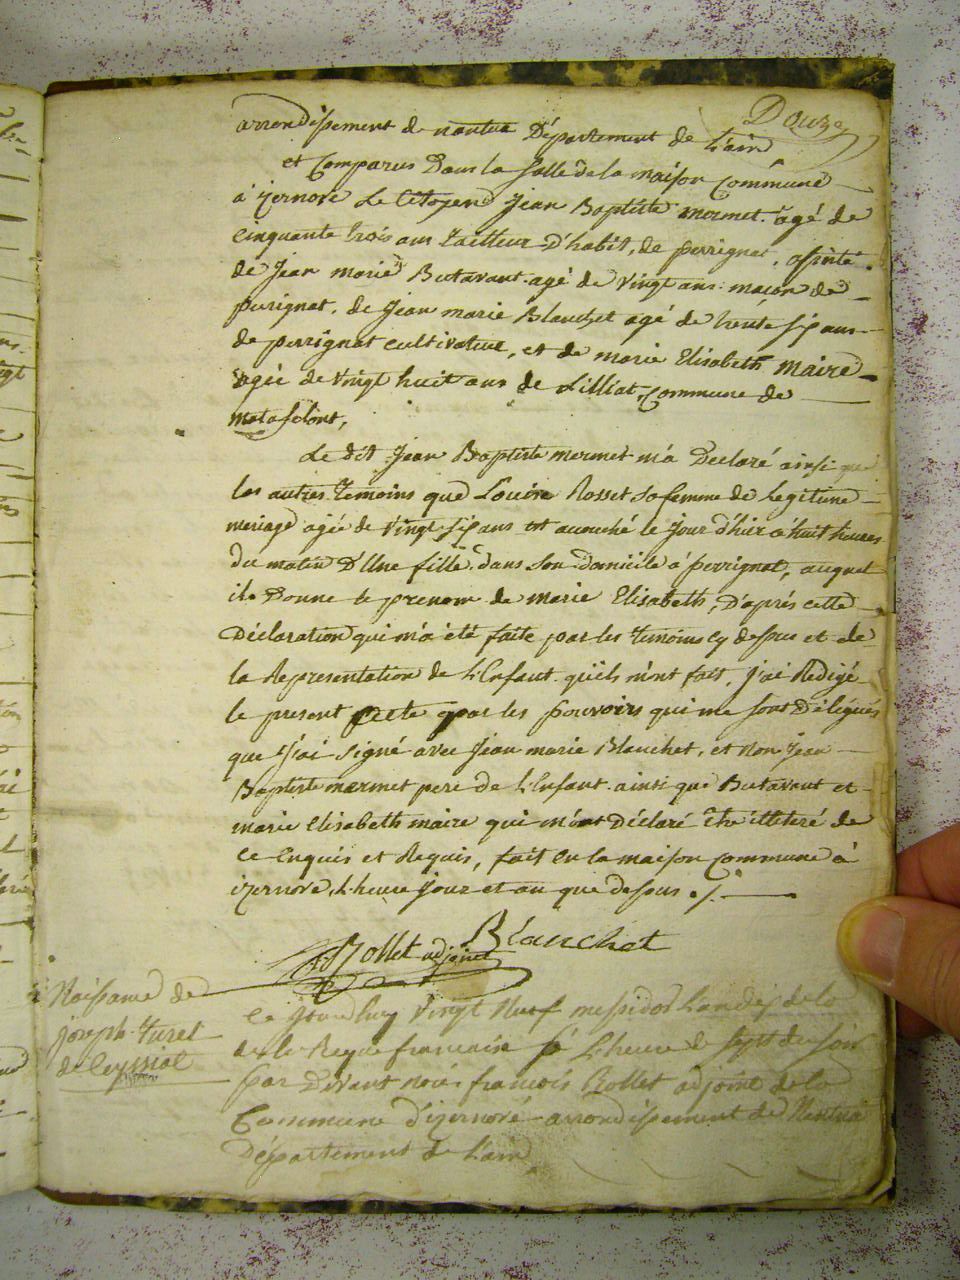 Douze
arrondissement de nantua Département de L'ain
et Comparus Dans la salle de la maison Commune
à izernore Le Citoyend Jean Baptiste mermet. agé de
cinquante trois ans tailleur D'habit, de perrignat, assisté
de Jean marie Butavant agé de vingt ans maçon de
perrignat, de Jean marie Blanchet agé de trente si ans
de perrignat cultivateur, et de marie Elisabeth maire
agée de vingt huit ans de Lilliat, Commune de
matafelont,
Le dit Jean Baptiste mermet m'a Declaré ainsi que
les autres temoins que Louise Rosset sa femme de legitime
mariage agée de vingt sipans est accouché le jour d'hier à huit heures
du matin D'Une fille dans son domicile à perrignat, auquel
il Donne le prenom de marie Elisabeth, D'aprés cette
Déclaration qui m'a été faite par les temoins cy dessus et de
la Representation de L'Enfant qu'ils m'ont fait, j'ai Redigé
le present acte par les pouvoirs qui me sont Délégués
que j'ai signé avec Jean marie Blanchet, et non Jean
Baptiste mermet pere de L'Enfant ainsi que Butavant et
marie Elisabeth maire qui m'ont Déclaré être illiteré de
ce Enquis et Requis, fait en la maison commune à
izernore L'heure jour et an que dessus ./.
Rollet adjoint Blanchet
Naissance de
joseph turet
de Ceyssiat
Ce jourd'huy vingt Neuf messidor L'an dix de la
de la Repue francaise à L'heure de sept du soir
par Devant moi francois Rollet adjoint de la
Commune d'izernore arrondissement de Nantua
Département de L'ain